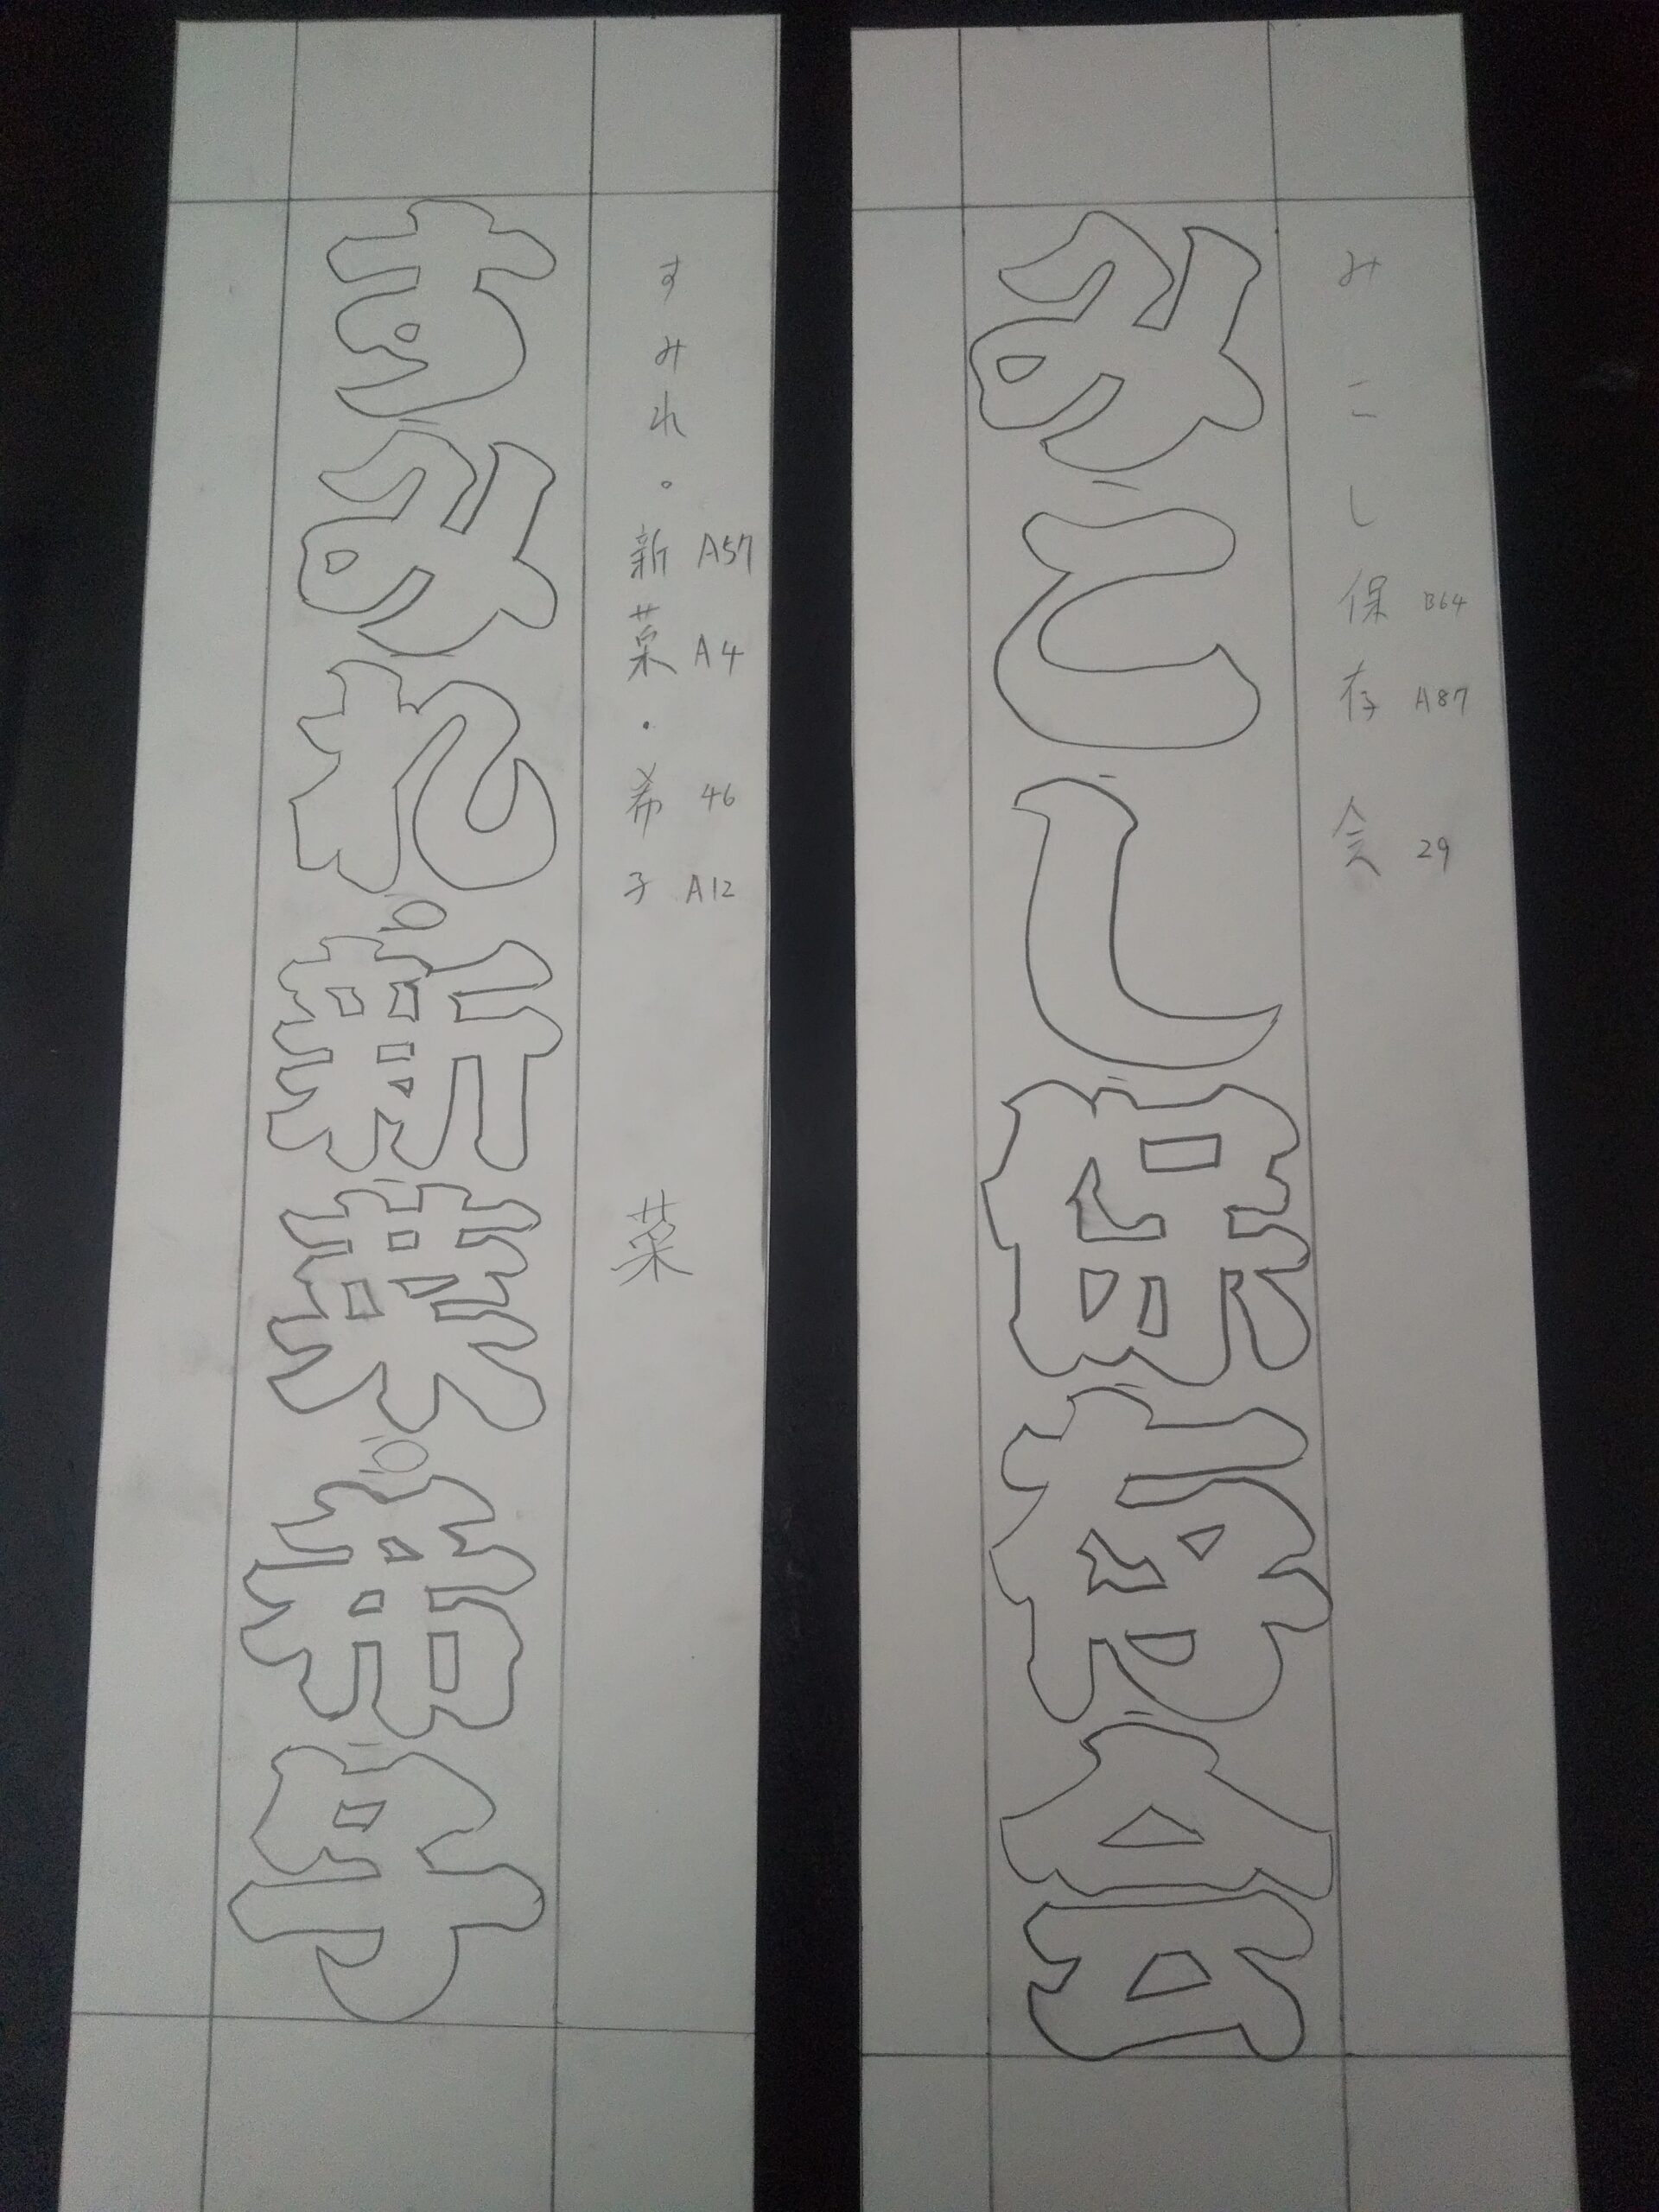 みこし保存会
み
こ
し
保 B64
存 A87
会 29
すみれ・新菜・希子
す
み
れ
・
新 A57
菜 A4
・
希 46
子 A12
菜